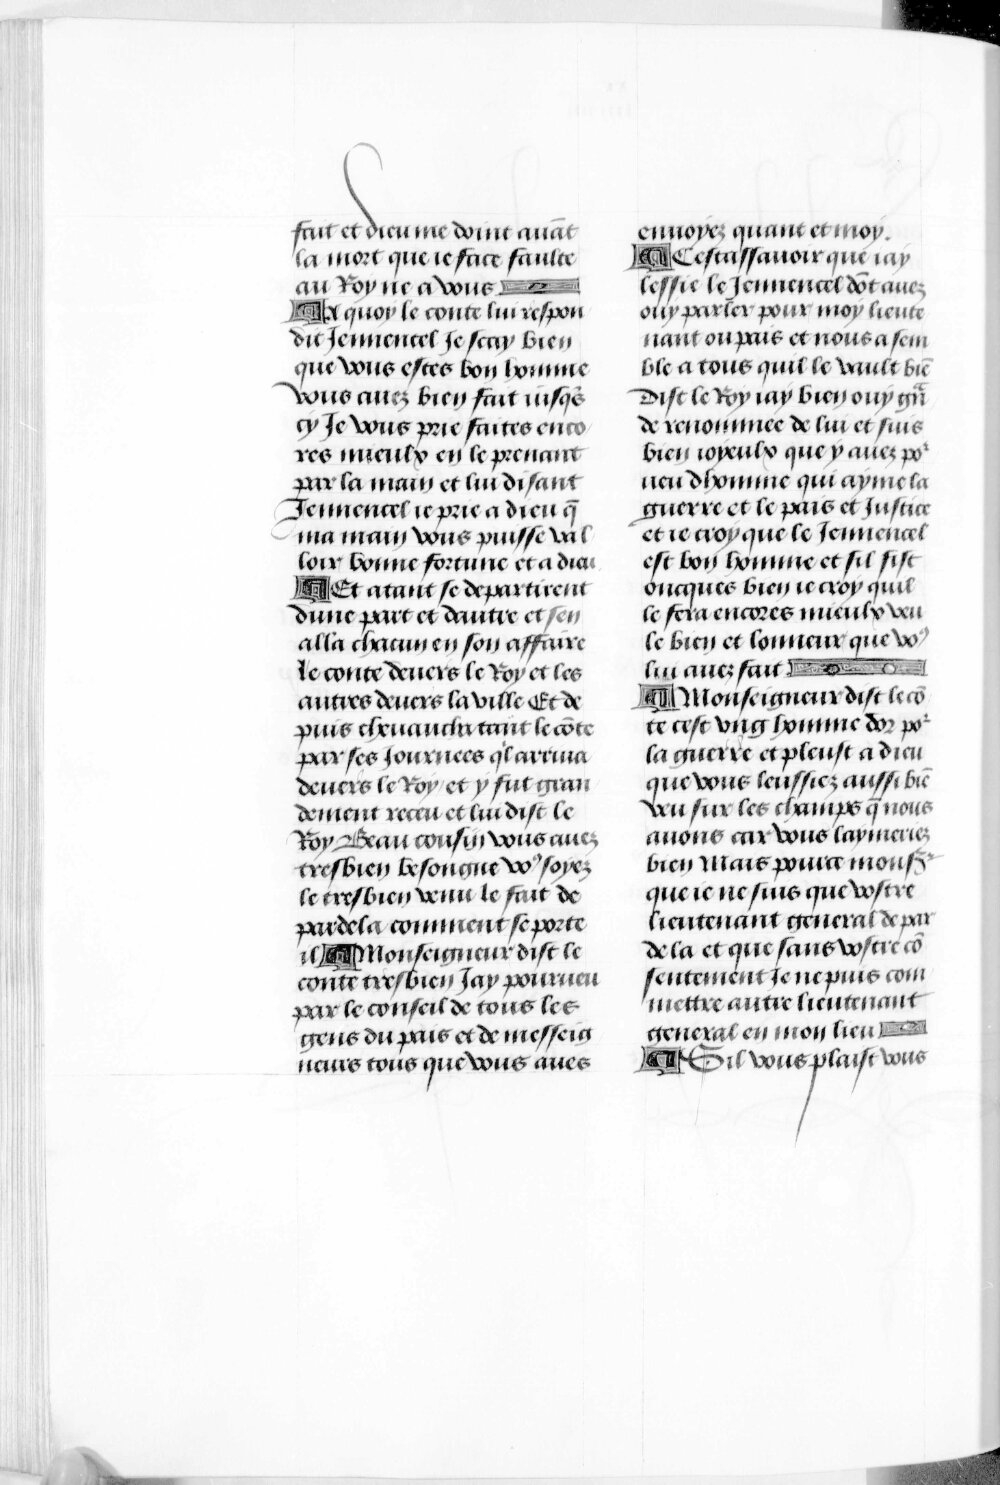 fait et dieu me doint auāt
la mort que ie face faulte
au Roy ne a vous
A quoy le conte lui respon
dit Jennencel Je scay bien
que vous estes bon homme
vous auez bien fait iusqs̄
cy Je vous prie faites enco
res mieulx en le prenant
par la main et lui disant
Jennencel ie prie a dieu q̄
ma main vous puisse val
loir bonne fortune et a dieu
Et atant se departirent
dune part et dautre et sen
alla chacun en son affaire
le conte deuers le Roy et les
autres deuers la ville Et de
puis cheuaucha tant le cōte
par ses Journees ql arriua
deuers le Roy et y fut gran
dement receu et lui dist le
Roy Beau cousin vous auez
tresbien besongne voꝰ soyez
le tresbien venu le fait de
pardela comment se porte
il Monseigneur dist le
conte tresbien Jay pourueu
par le conseil de tous les
gens du pais et de messeig
neurs tous que vous aues
enuoyez quant et moy.
Cestassauoir que iay
lessie le Jennencel dōt auez
ouy parler pour moy lieute
nant ou pais et nous a sem
ble a tous quil le vault biē
Dist le Roy iay bien ouy gn̄
de renommee de lui et suis
bien ioyeulx que y auez por
ueu dhomme qui ayme la
guerre et le pais et Justice
et ie croy que le Jennencel
est bon homme et sil fist
oncques bien ie croy quil
le fera encores mieulx veu
le bien et lonneur que voꝰ
lui auez fait
Monseigneur dist le cō
te cest vng homme dor por
la guerre et pleust a dieu
que vous leussiez aussi biē
veu sur les champs q̄ nous
auons car vous laymeriez
bien Mais pource monsr
que ie ne suis que vostre
lieutenant general de par
de la et que sans vostre cō
sentement Je ne puis com
mettre autre lieutenant
general en mon lieu
Sil vous plaist vous